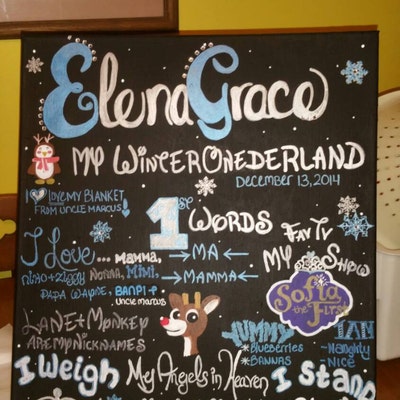 Elena Grace
My Winter Onederland
December 13, 2014
I my blanket
from uncle marcus!
1st Words
Fav TV
Show
My
I Love...
mamma,
→MA→
→MAMMA←
nonna, mimi,
Papa Wayne, Banpi +
uncle marcus
Sofia
the First
Lane + Monkey
are my nicknames
Yummy
*Blueberries
*Bannas
I am
~Naughty
Nice
I Weigh
My Angels in Heaven
I Stand